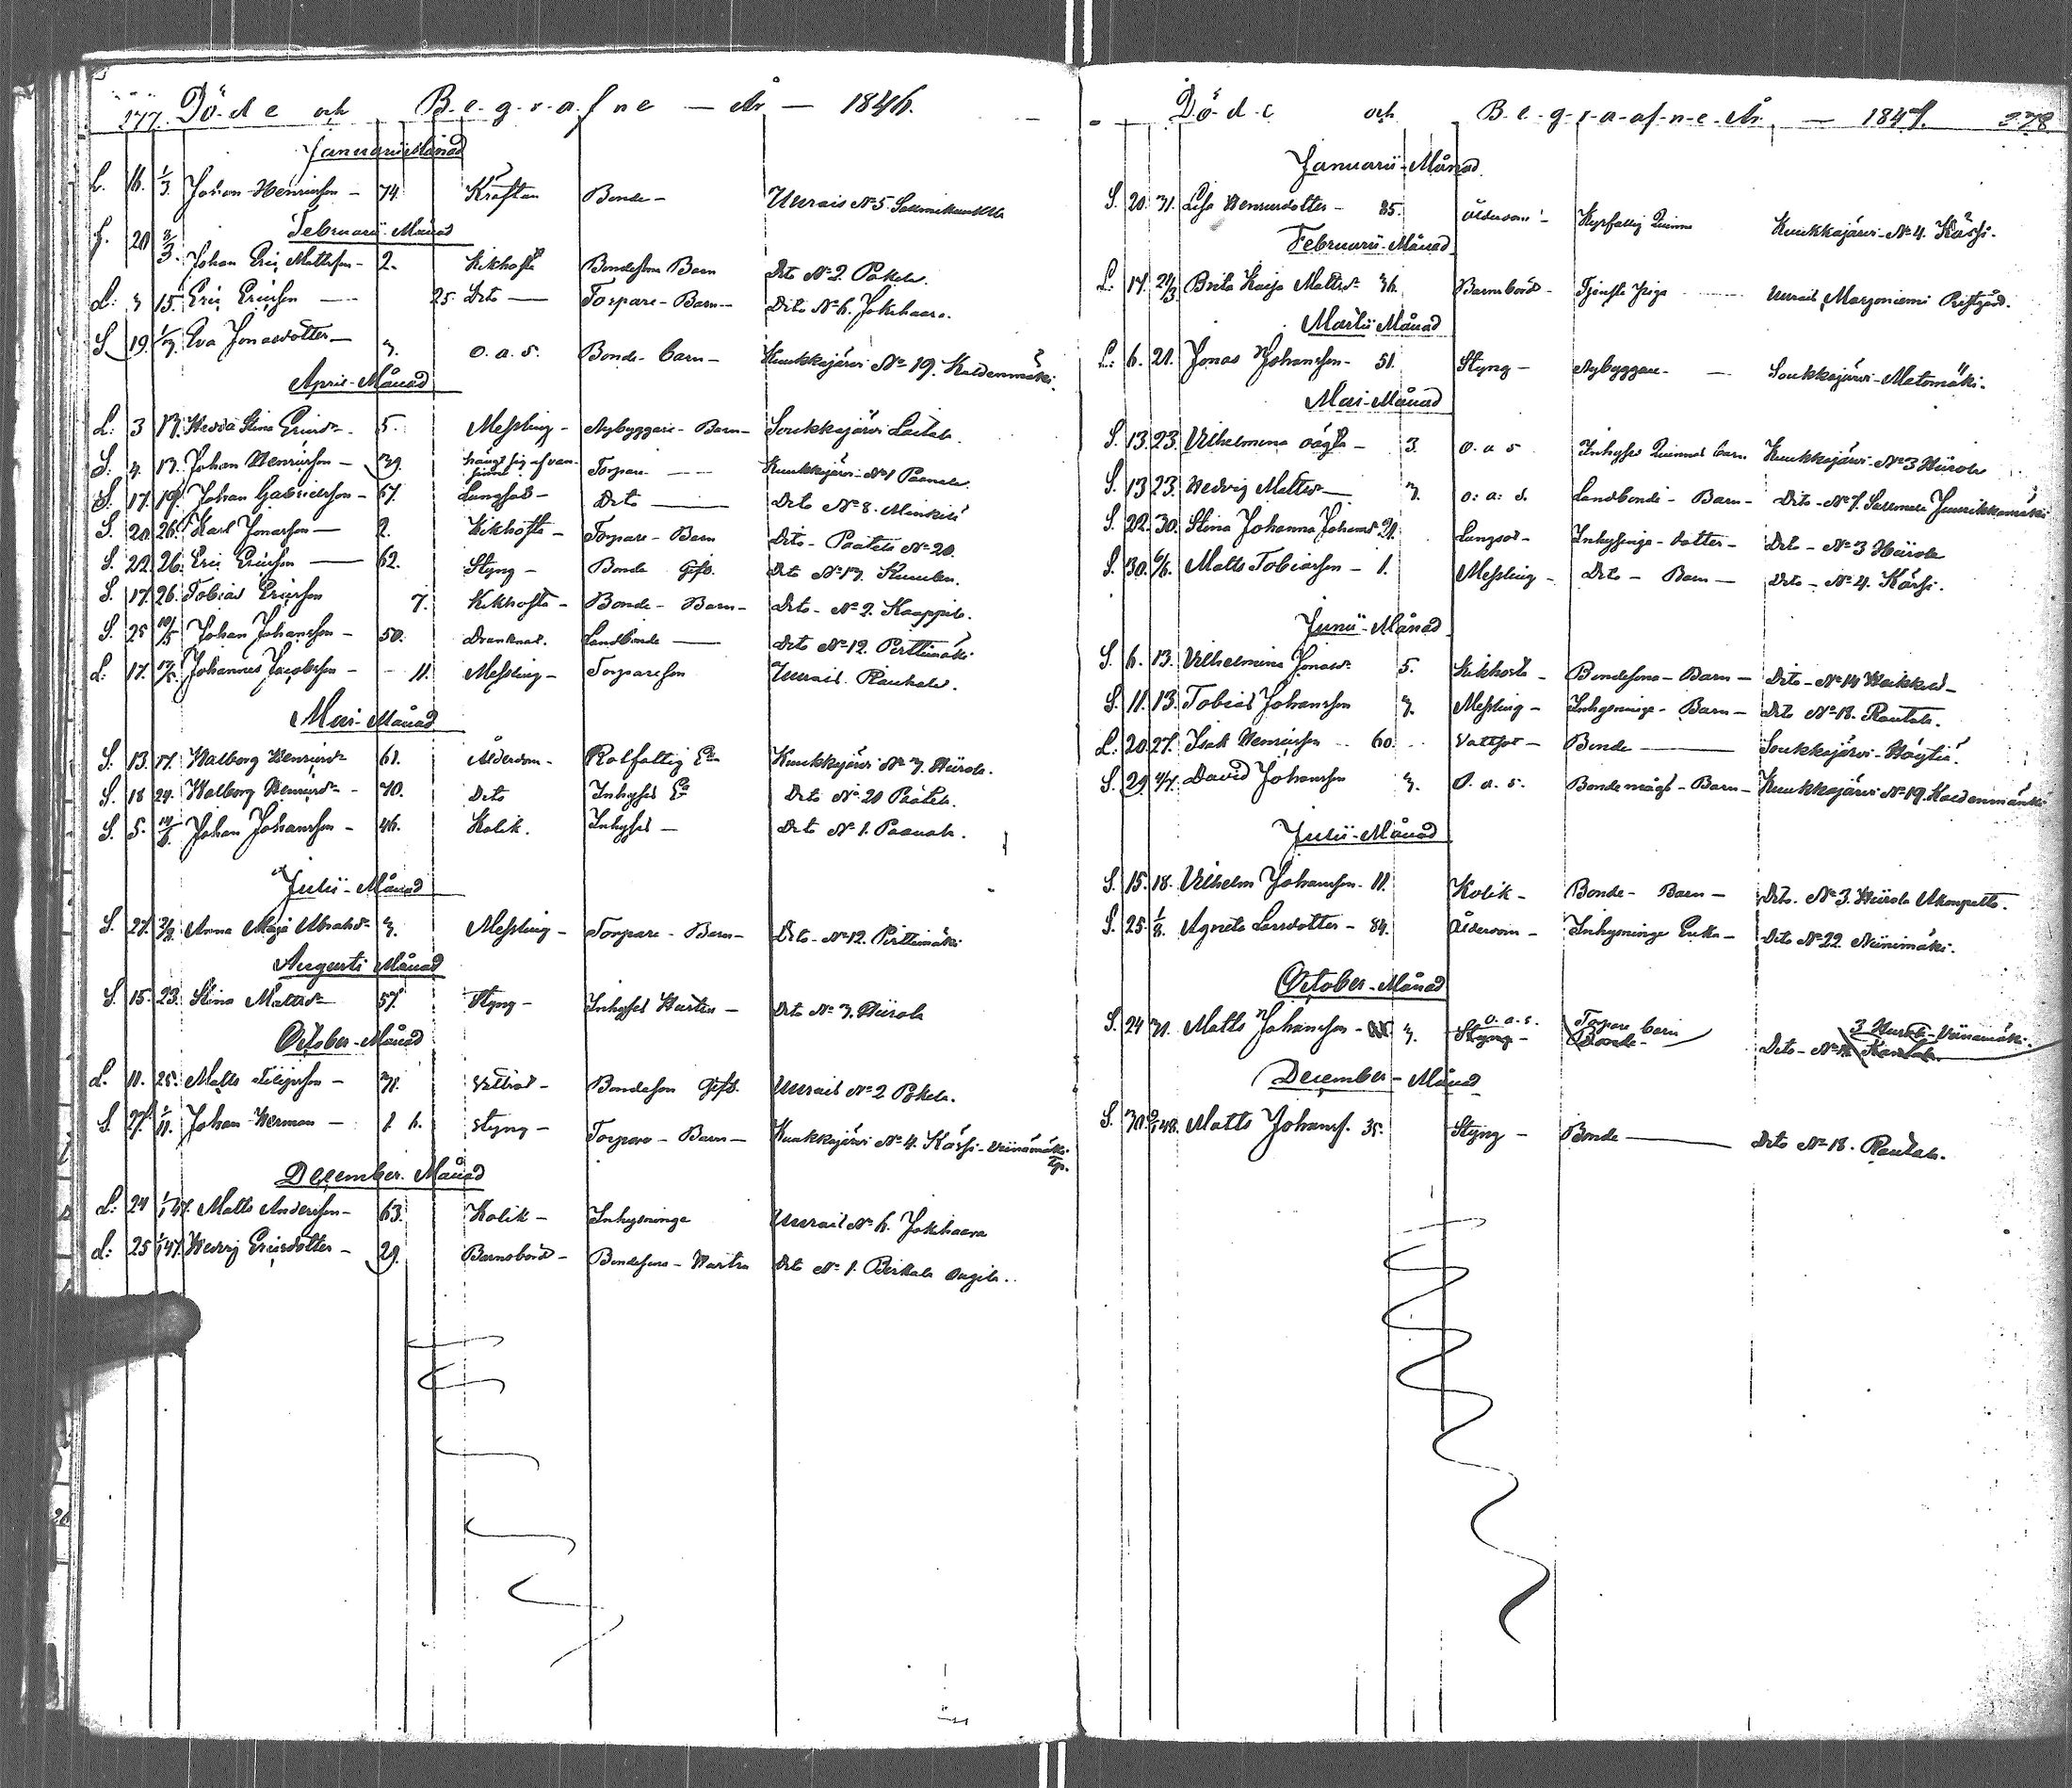 277. Döde och Begrafne År 1846.
Januarii Månad
L. 16. 1/3 Johan Henricsson - 74. Kräftan Bonde - Uurais No 5
Februarii Månad
20 Johan Eric Mattsson - 2. Kikhosta Bondesons Barn Dito No 2. Pokela.
L: 15. Eric Ericsson - 25. Dito - Torpare - Barn - Dito No 6. Jokihaara.
S 19. Eva Jonasdotter - 3. o. a. s. Bonde - barn - Kuukkajärvi No 19. Kaldenmäki.
April - Månad
L: 3 13. Hedda Stina Ericsdr 5. Messling - Nybyggare - Barn - Soukkajärvi Laitala.
S: 4. 13. Johan Henricsson - 39. hängt sig af van- sinne Torpare - Kuukkajärvi No 1 Paanala.
S: 17. 19. Johan Gabrielsson - 67. Lungsot - Dito - Dito No 8. Minkili
S. 20. 26. Karl Jonasson - 2. Kikhosta - Torpare - Barn Dito - Paatela No 20.
S. 22. 26. Eric Ericsson - 62. Styng - Bonde Gift. Dito No 13.
S. 17. 26. Tobias Ericsson 7. Kikhosta - Bonde - Barn - Dito - No 2. Kaappila.
S. 25 10/5 Johan Johansson - 50. Drunknat. Landbonde - Dito No 12. Perttimäki
L: 17. Johannes Jacobsson - 11. Messling - Torpareson Uurais Rauhala.
Mai - Månad
S. 13. 17. Walborg Henricsdr 61. Ålderdom - Rotfattig Ea Kuukkajärvi No 3. Hiirola.
S. 18 24. Walborg Henricsdr - 70. Dito Inhyses Ea Dito No 20 Paatela.
S. 5. Johan Johansson - 46. Kolik. Inhyses - Dito No 1. Paanala.
Julii - Månad
S. 27. Anna Maja Abrahsdr 3. Messling - Torpare - Barn - Dito - No 12. Perttimäki
Augusti Månad
S. 15. 23. Stina Mattsdr 57. Styng - Inhyses Hustru - Dito No 3. Hiirola
October - Månad
L. 11. 25. Matts - 31. Bondeson Gift. Uurais No 2 Pokela.
S 27. 1/11. Johan Herman - 1 6. Styng - Torpare - Barn - Kuukkajärvi No 4. Kässi - Viinamäki Tp.
December. Månad
L: 24 1/1 47. Matts Andersson - 63. Kolik - Inhysninge Uurais No 6. Jokihaara
L: 25 1/1 47. Hedvig Ericsdotter - 29. Barnsbörd - Bondesons - Hustru Dito No 1. Berkala
Döde och Begrafne År - 1847. 278
Januarii - Månad
S. 20. 31. Lisa Henricsdotter - 85. Ålderdom - Quinna Kuukkajärvi - No 4. Kässi.
Februarii - Månad
L. 17. 21/3 Brita Kaisa Mattsdr 36. Barnsbörd - Tjenste Piga Uurais, Marjoniemi Prestgård.
Martii Månad
L: 6. 21. Jonas Johansson - 51. Styng - Nybyggare - Soukkajärvi - Matomäki.
Mai - Månad
S. 13. 23. Vilhelmina oägta - 3. o. a s Inhyses Quinnas barn Kuukkajärvi - No 3 Hiirola
S. 13 23. Hedvig Mattsdr 3. o: a: s. Landbonde - Barn - Dito - No 7.
S. 22. 30. Stina Johanna Johansd 21. Lungsot - Inhysinge - dotter - Dito - No 3 Hiirola
S. 30. 6/6. Matts Tobiasson - 1. Messling - Dito - Barn - Dito - No 4. Kässi.
Junii - Månad
S. 6. 13. Vilhelmina Jonasdr 5. Kikhosta - Bondesons - Barn - Dito - No 14
S. 11. 13. Tobias Johansson 3. Messling - Inhysninge - Barn - Dito No 18. Rautala.
L. 20. 27. Isak Henricsson - 60. Vattsot - Bonde - Soukkajärvi - Höytiä
S. 29. 4/7. David Johansson 3. O. a. s. Bondemågs - Barn - Kuukkajärvi No 19. Kaldenmäki
Julii - Månad
S. 15. 18. Vilhelm Johansson - 11. Kolik - Bonde - Barn - Dito. No 3. Hiirola
S. 25. 1/8. Agneta Larsdotter - 84. Ålderdom - Inhysninge Enka - Dito No 22 Niinimäki.
October - Månad
S. 24 31. Matts Johansson - 3. o. a. s. Styng - Torpare barn Bonde - 3 Viinamäki. Dito - No 18 Rautala.
December - Månad
S. 30. 48. Matts Johanss. 35. Styng - Bonde - Dito No 18. Rautala.